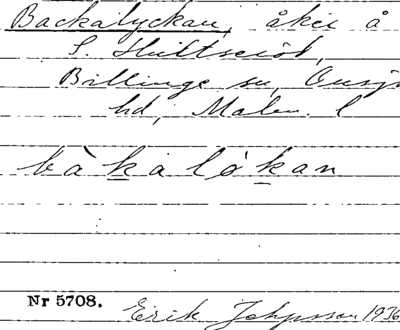 Backalyckan, åker å
S. Hultseröd,
Billinge sn, Onsjö
hd, Malm. l
bàkaløkan
Nr 5708.
Erik Johnsson 1936